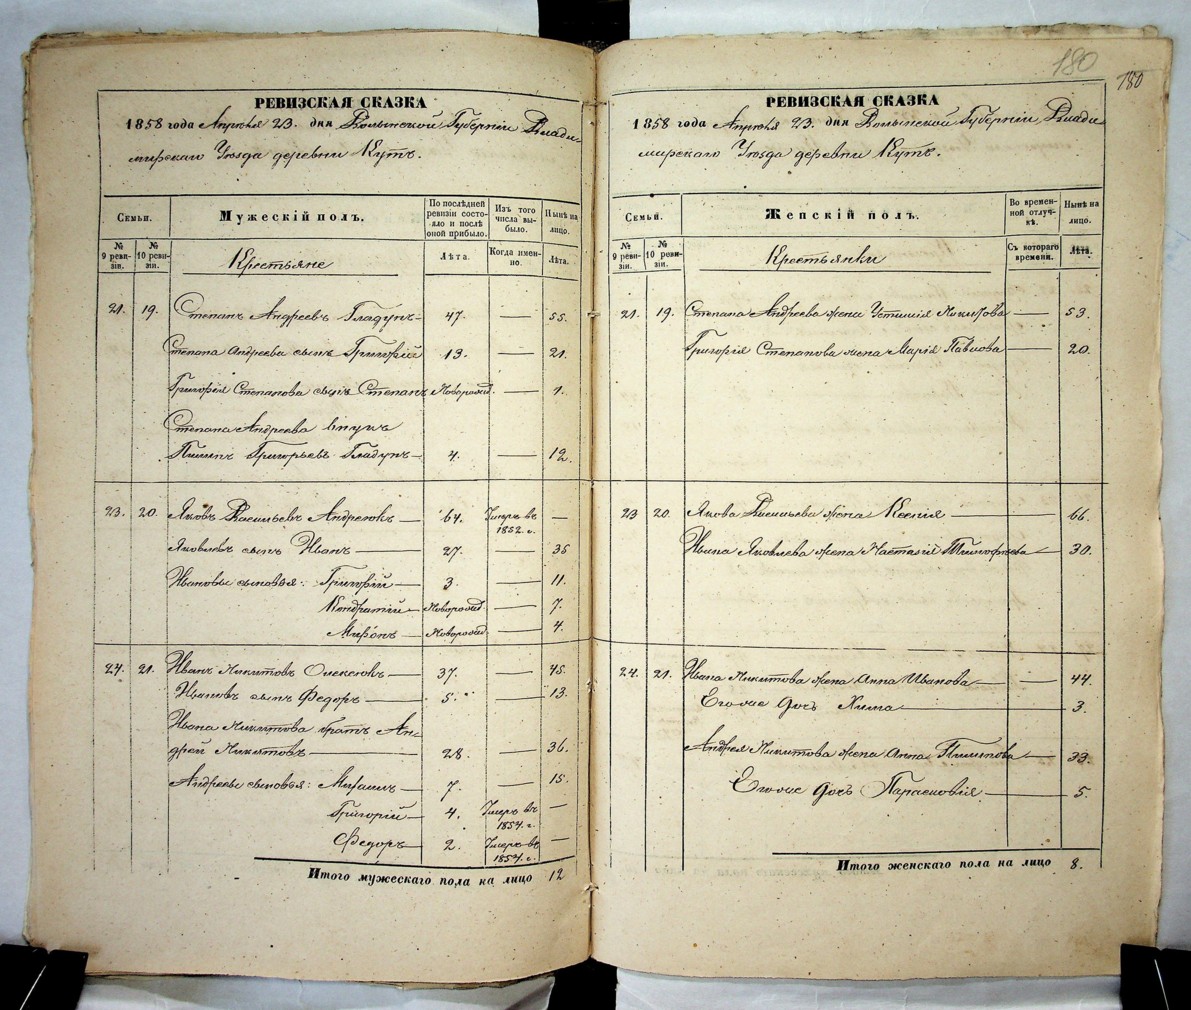 180
180
РЕВИЗСКАЯ СКАЗКА
1858 года Апреля 23. дня Волынской Губернии Влади-
мирскаго Уезда деревни Кутъ.
Семьи.
Мужескій полъ.
По послѣдней ревизіи состо-яло и послѣ оной прибыло.
Изъ того числа вы-было.
Нынѣ на лицо.
№ 9 реви-зіи.
№ 10 реви-зіи.
Крестьяне
Лѣта.
Когда имен-но.
Лѣта.
21. 19. Степанъ Андреевъ Гладунъ 47. — 55.
Степана Андреева сынъ Григорій 13. — 21.
Григорія Степанова сынъ Степанъ Новорожд. — 1.
Степана Андреева внукъ
Пилипъ Григорьевъ Гладунъ 4. — 12.
23. 20. Яковъ Васильевъ Андреюкъ — 64. Умеръ въ 1852. г. —
Яковлевъ сынъ Иванъ — 27. — 35
Ивановы сыновья: Григорій — 3. — 11.
Кондратій — Новорожд. — 7.
Миронъ — Новорожд. — 4.
24. 21. Иванъ Никитовъ Олексюкъ — 37. — 45.
Ивановъ сынъ Федоръ — 5. — 13.
Ивана Никитова братъ Ан-
дрей Никитовъ — 28. — 36.
Андреевы сыновья: — 7. — 15.
Григорій — 4. Умеръ въ 1854. г. —
Федоръ — 2. Умеръ въ 1854. г. —
Итого мужескаго пола на лицо 12
РЕВИЗСКАЯ СКАЗКА
1858 года Апреля 23. дня Волынской Губернии Влади-
мирскаго Уезда деревни Кутъ.
Семьи.
Женскій полъ.
Во времен-ной отлуч-кѣ.
Нынѣ на лицо.
№ 9 реви-зіи.
№ 10 реви-зіи.
Крестьянки
Съ котораго времени.
Лѣта.
21. 19. Степана Андреева жена Устинія Никитова — 53.
Григорія Степанова жена Марія Павлова — 20.
23 20. Якова Васильева жена Ксенія — 66.
Ивана Яковлева жена Настасія Тимофеева — 30.
24. 21. Ивана Никитова жена Анна Иванова — 44.
Ея дочь Хима — 3.
Андрея Никитова жена Анна Пилипова — 33.
Ея дочь Параскевія — 5.
Итого женскаго пола на лицо 8.